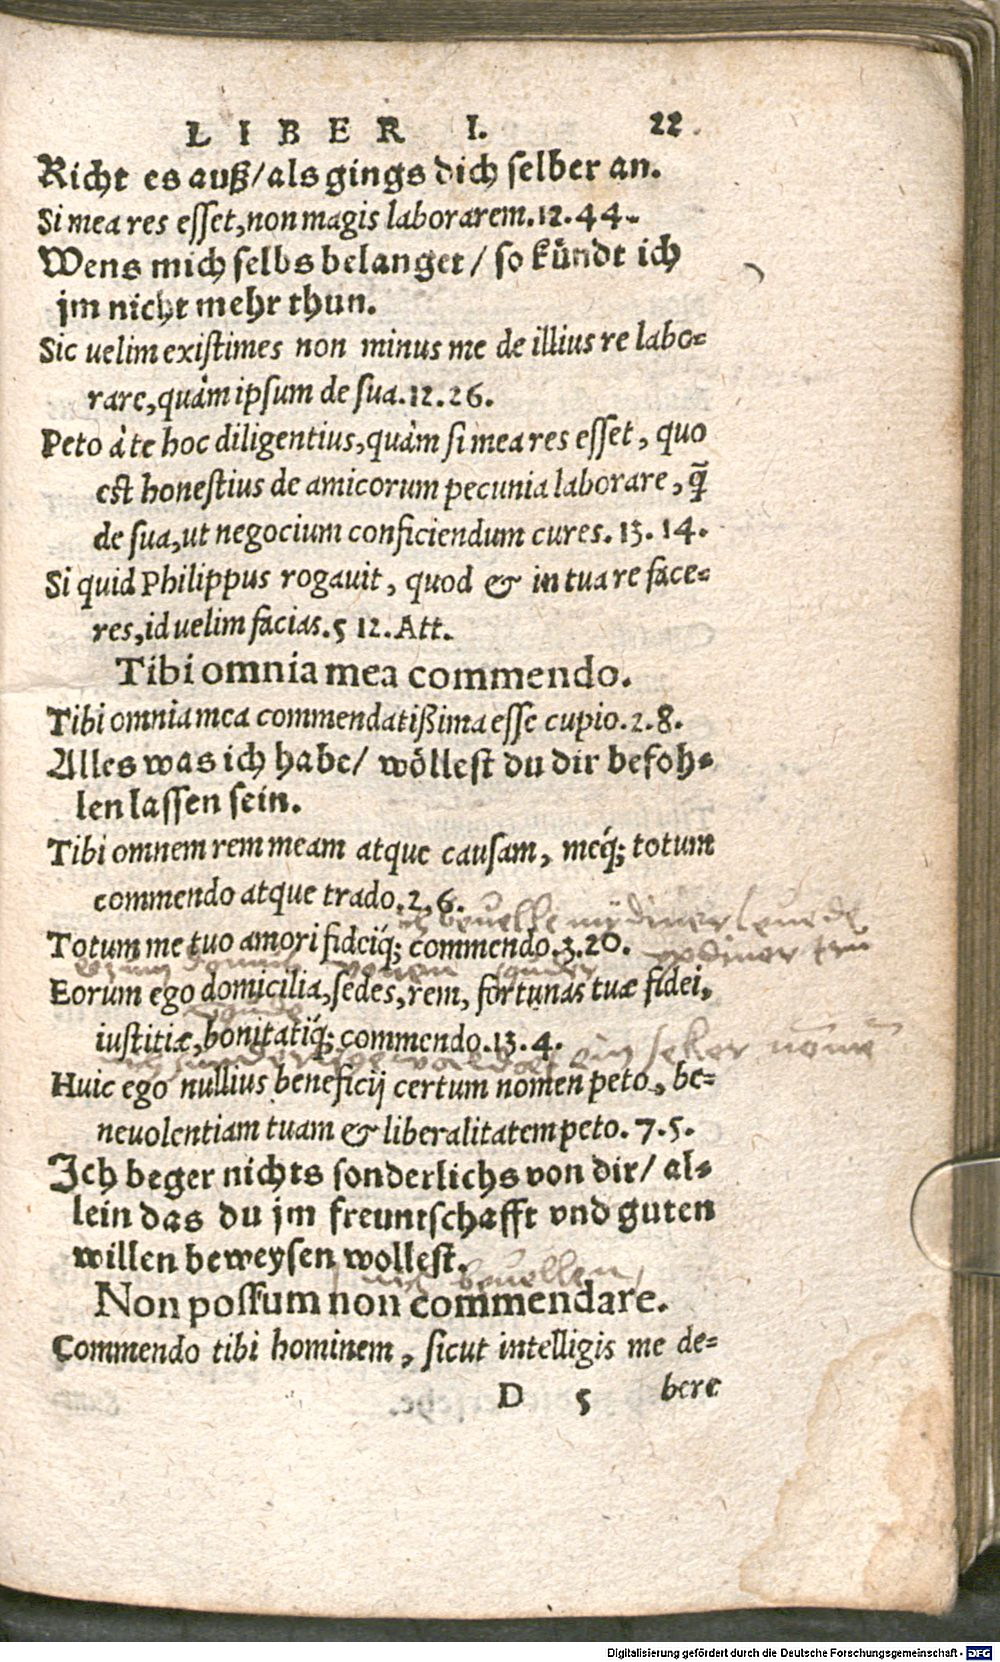 LIBER I. 22
Richt es auß/als gings dich selber an.
Si mea res esset, non magis laborarem. 12.44.
Wens mich selbs belanget/ so kündt ich
jm nicht mehr thun.
Sic uelim existimes non minus me de illius re labo-
rare, quàm ipsum de sua. 12.26.
Peto à te hoc diligentius, quàm si mea res esset, quo
est honestius de amicorum pecunia laborare, q̃
de sua, ut negocium conficiendum cures. 13.14.
Si quid Philippus rogauit, quod & in tua re face-
res, id uelim facias. 5 12. Att.
Tibi omnia mea commendo.
Tibi omnia mea commendatißima esse cupio. 2.8.
Alles was ich habe/ wöllest du dir befoh-
len lassen sein.
Tibi omnem rem meam atque causam, meq́; totum
commendo atque trado. 2.6.
ich beuelle my diner leue
Totum me tuo amori fideiq́; commendo. 3.20.
Eorum ego domicilia, sedes, rem, fortunas tuæ fidei,
iustitiæ, bonitatiq́; commendo. 13.4.
ein seker
Huic ego nullius beneficij certum nomen peto, be-
neuolentiam tuam & liberalitatem peto. 7.5.
Ich beger nichts sonderlichs von dir/ al-
lein das du jm freuntschafft vnd guten
willen beweysen wollest.
beuellen
Non possum non commendare.
Commendo tibi hominem, sicut intelligis me de-
D 5 bere
Digitalisierung gefördert durch die Deutsche Forschungsgemeinschaft - DFG